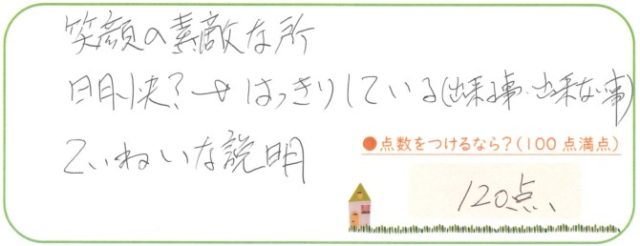 笑顔の素敵な所
明快?→はっきりしている(出来る事・出来ない事)
ていねいな説明
●点数をつけるなら?(100点満点)
120点、